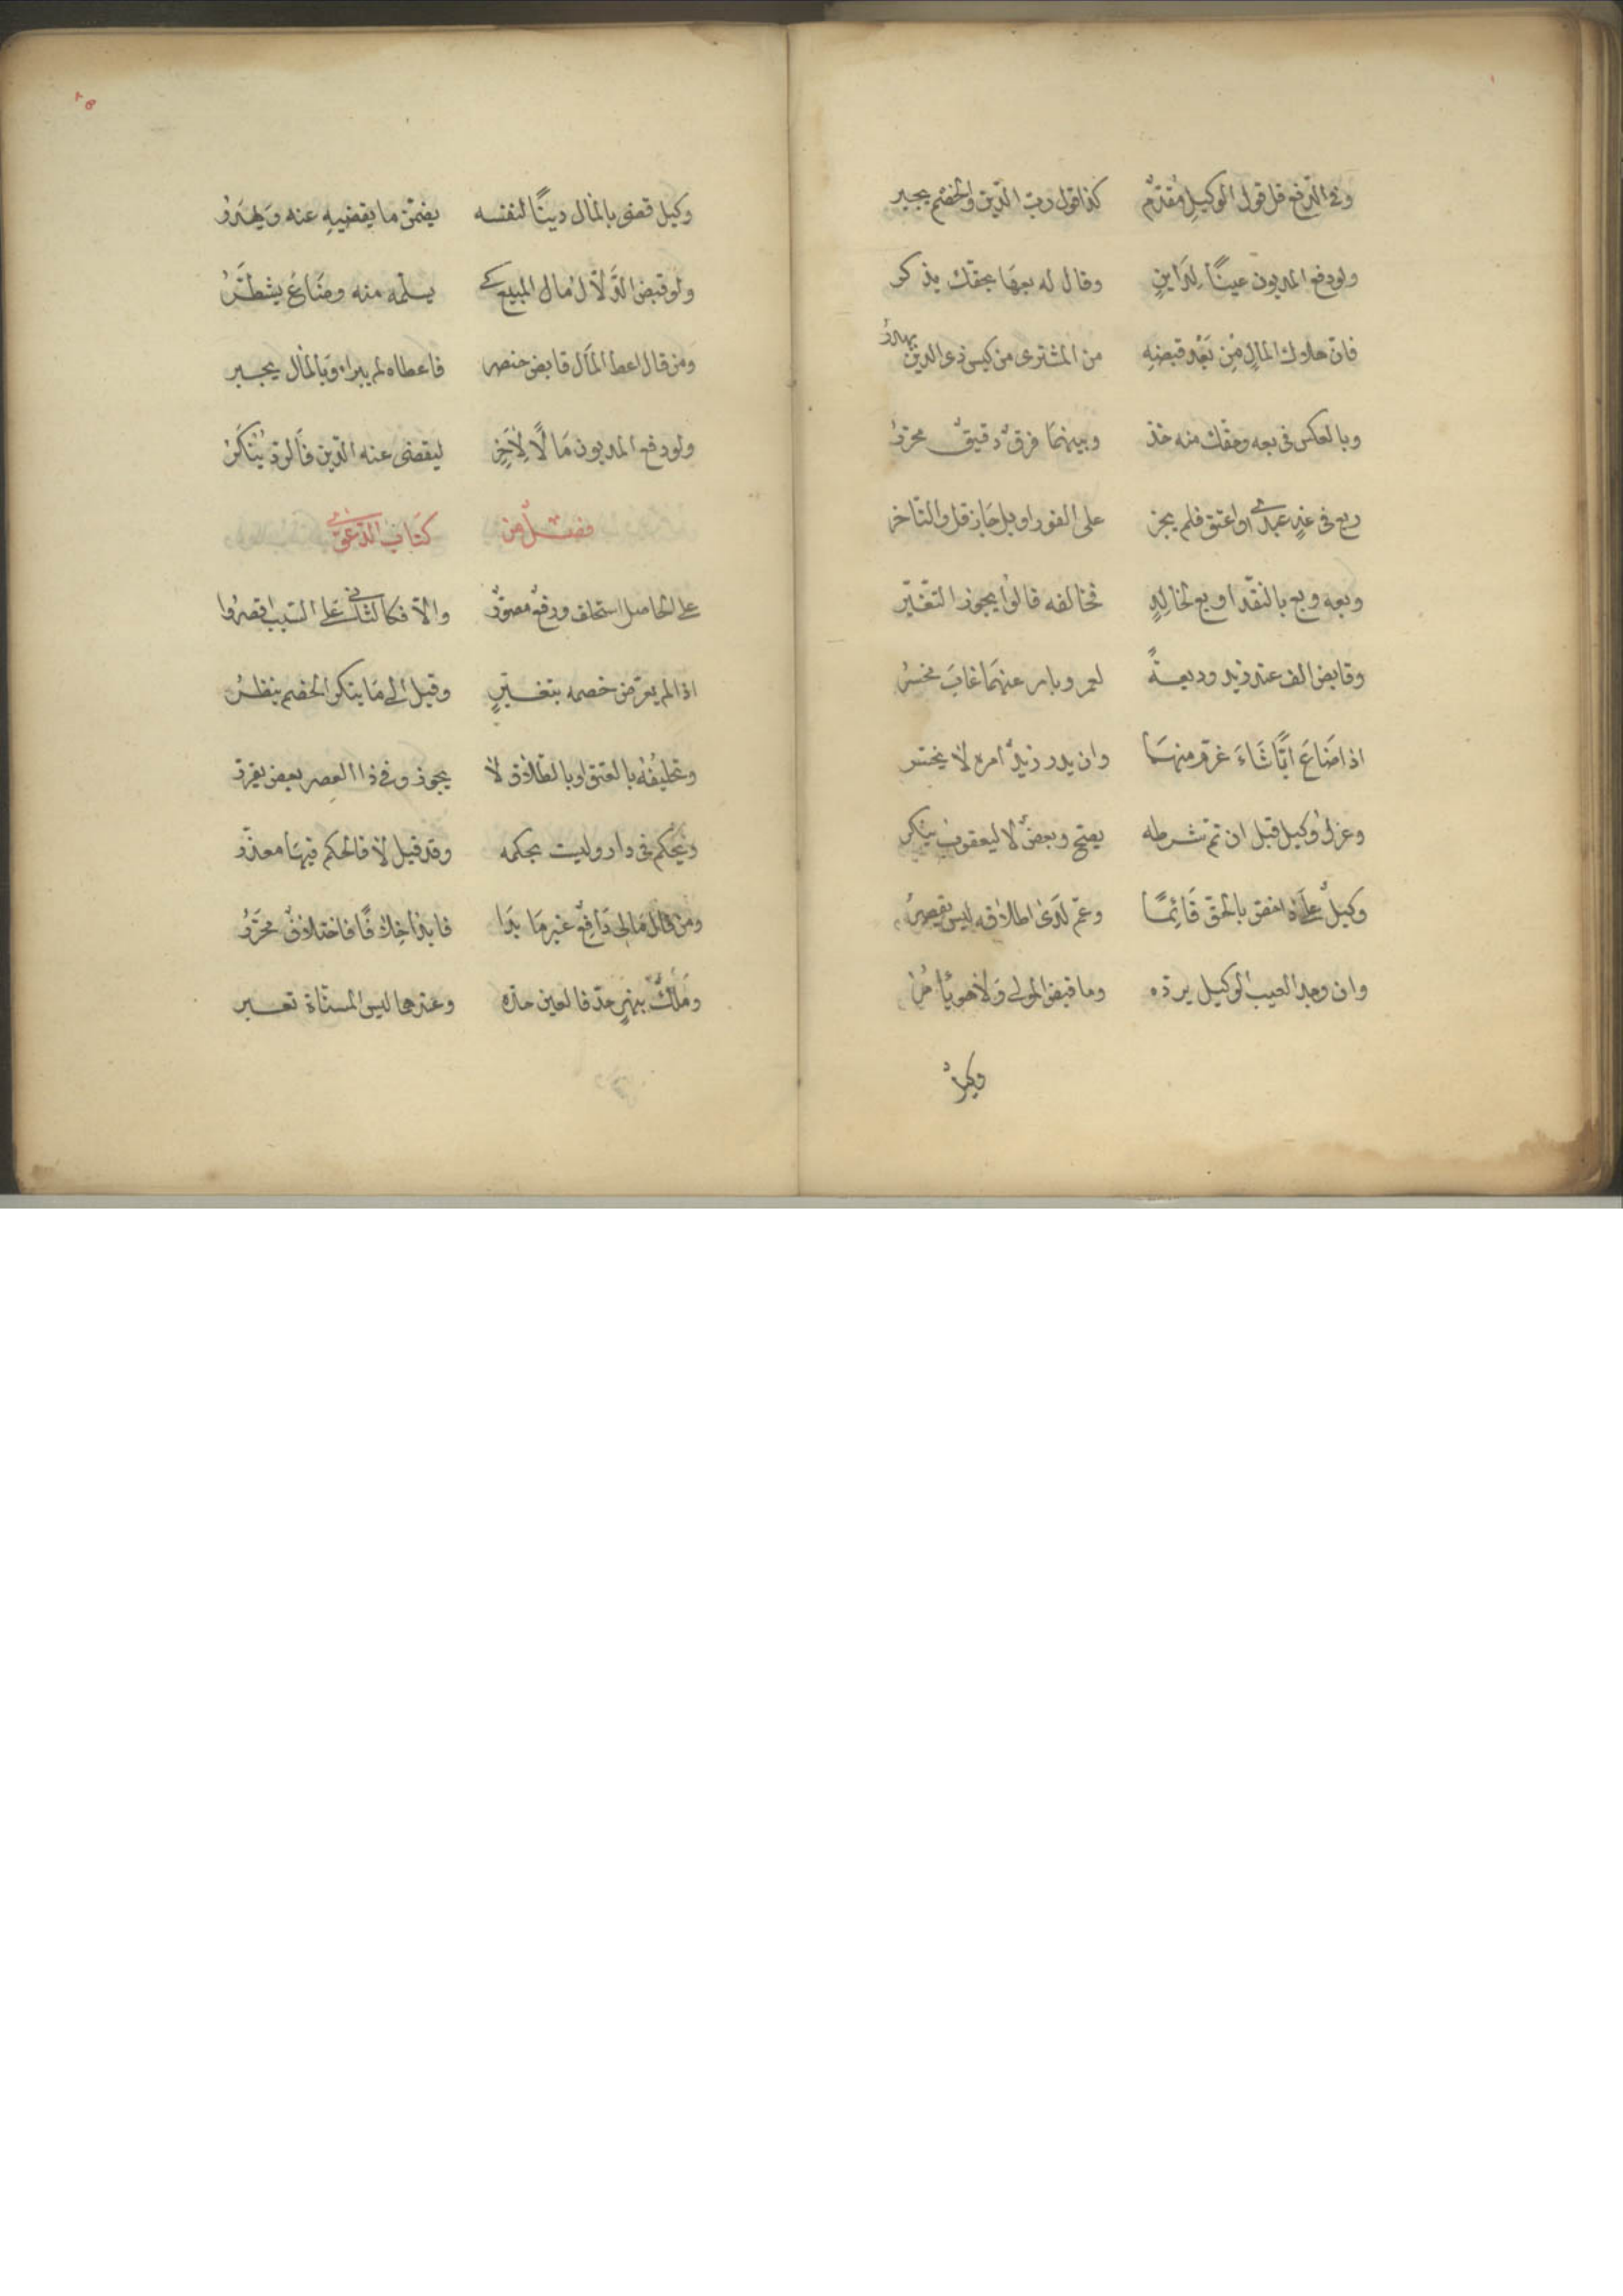 وفي الدفع قل قول الوكيل مقدم كذا قول رب الدين والخصم يجبر
ولو دفع المديون عينًا لداين وقال له بعها بحقك يذكر
فان هلاك المال من بعد قبضه من المشترى من كيس ذى الدين يهدر
وبالعكس فى بعه وحقك منه خذ وبينهما فرق دقيق محرر
بع فى غد عبدى او اعتق فلم يجز على الفور او بل جاز قل والتاخر
وبعه وبع بالنقد او بع لخالد فخالفه قالوا يجوز التغير
وقابض الف عند زيد وديعة لعمرو عنهما غاب
اذا ضاع ايًا شاء غرم منهما وان يدر زيد امره لا يخسر
وعزل وكيل قبل ان تم شرطه يصح وبعض لا ليعقوب ينكر
وكيل بالحق قائمًا وعم لدى اطلاقه ليس يقصر
وان وجد العيب الوكيل يرده وما قبض المولى ولا هو يأمر
وكيل
وكيل قضى بالمال دينًا لنفسه يضمن ما يقضيه عنه ويهدر
ولو قبض الدلال مال المبيع كى يسلمه منه وضاع يشطر
ومن قال اعط المال قابض خنصر فاعطاه لم يبرا وبالمال يجبر
ولو دفع المديون مالًا لاخر ليقضى عنه الدين فالرد ينكر
فصل من كتاب الدعوى
على الحاصل استحلف ورفع مصور والا فكالثانى على السبب اقصروا
اذا لم يعرض خصمه بتغير وقيل الى ما ينكر الخصم ينظر
وتحليفه بالعتق او بالطلاق لا يجوز وفى ذا العصر بعض يقرر
ويحكم فى دار وليت بحكمه وقد قيل لا فالحكم فيها معذر
ومن قال مالى دافع غير ما بدا فابدا خلافًا فاختلاف محرر
وملك بنهر حد فالعين حده وعندهما ليس المسناة تعبر